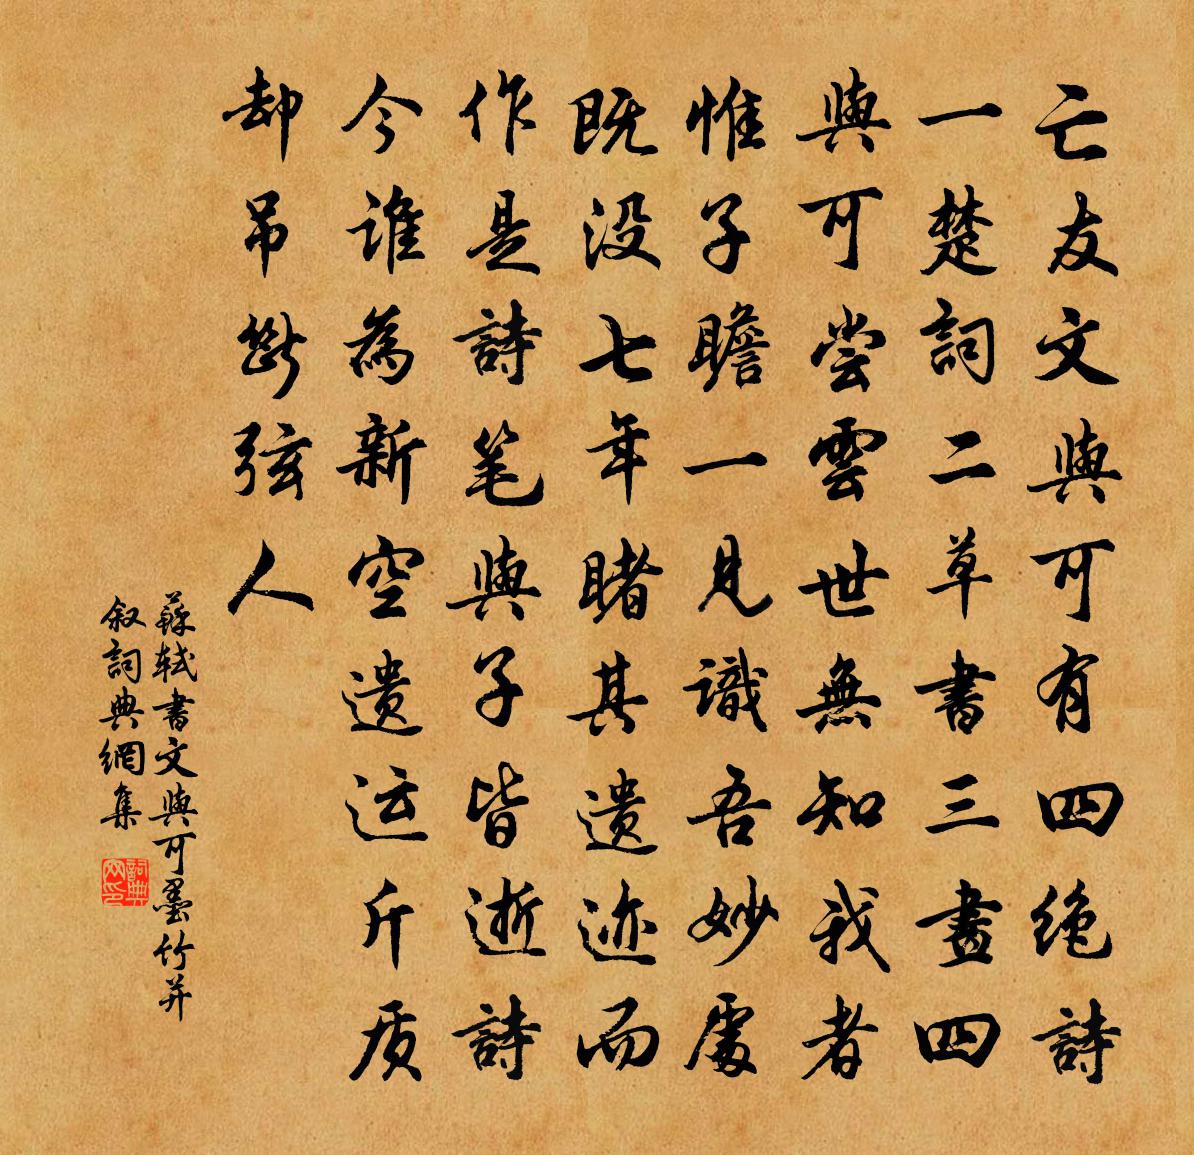 亡友文與可有四絶詩
一楚詞二草書三畫四
與可尝雲世無知我者
惟子瞻一見識吾妙處
既没七年睹其遗迹而
作是詩笔與子皆逝詩
今谁為新空遗运斤质
却吊斷弦人
蘇轼書文與可墨竹并
叙詞典網集
詞典网印